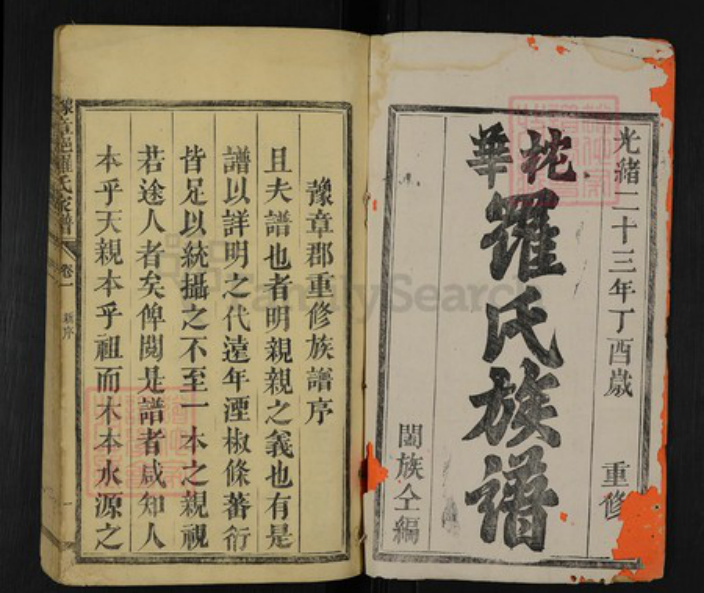 光緒二十三年丁酉歲 重修
花華
羅氏族譜
闔族仝編
豫章郡重修族譜序
且夫譜也者明親親之義也有是
譜以詳明之代遠年湮椒條蕃衍
皆足以統攝之不至一本之親視
若途人者矣俾閱是譜者咸知人
本乎天親本乎祖而木本水源之
豫章郡羅氏家譜
卷一
新序
一
FamilySearch